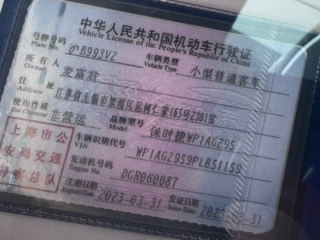 中华人民共和国机动车行驶证
Vehicle License of the People's Republic of China
号牌号码 沪B993V2 车辆类型 小型普通客车
Plate No. Vehicle Type
所有人
Owner
住址
Address
使用性质 非营运 品牌型号 保时捷WP1AG295
上海市公 车辆识别代号
VIN WP1AG2959PLB51159
安局交通 发动机号码
Engine No. DGR060087
警察总队 注册日期 2023-03-31 发证日期 2023-03-31
Register Date Issue Date